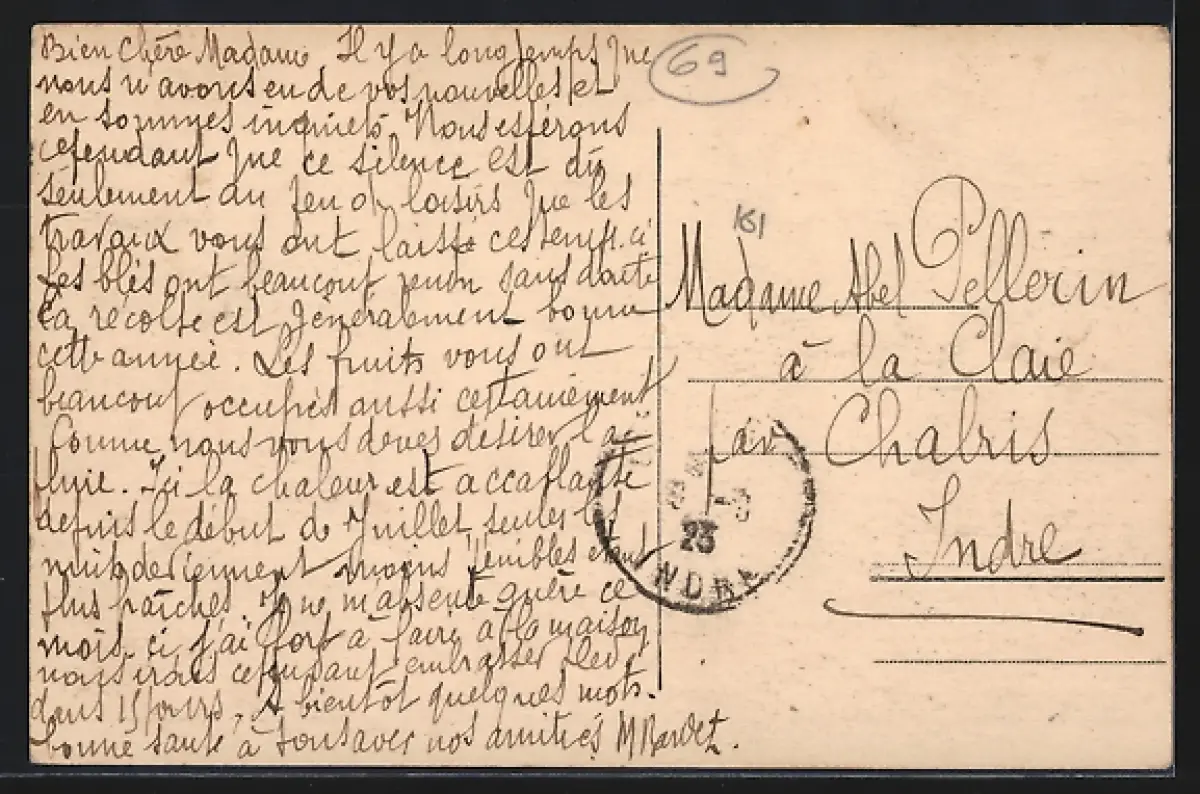 Bien chère Madame Il y a longtemps que
nous n'avons eu de vos nouvelles et
en sommes inquiets. Nous espérons
cependant que ce silence est dû
seulement au peu de loisirs que les
travaux vous ont laissé ces temps-ci
Les blés ont beaucoup rendu sans doute
La récolte est généralement bonne
cette année. Les fruits vous ont
beaucoup occupés aussi certainement
Comme nous vous devez désirer la
pluie. Ici la chaleur est accablante
depuis le début de Juillet, seules les
nuits deviennent moins pénibles étant
plus fraîches. Je ne m'absente guère ce
mois-ci, j'ai fort à faire à la maison
nous irons cependant embrasser
dans 15 jours, A bientôt quelques mots.
bonne santé à tous avec nos amitiés M Bardet.
69
161
Madame Abel Pellerin
à la Claie
par Chabris
Indre
23
INDRE